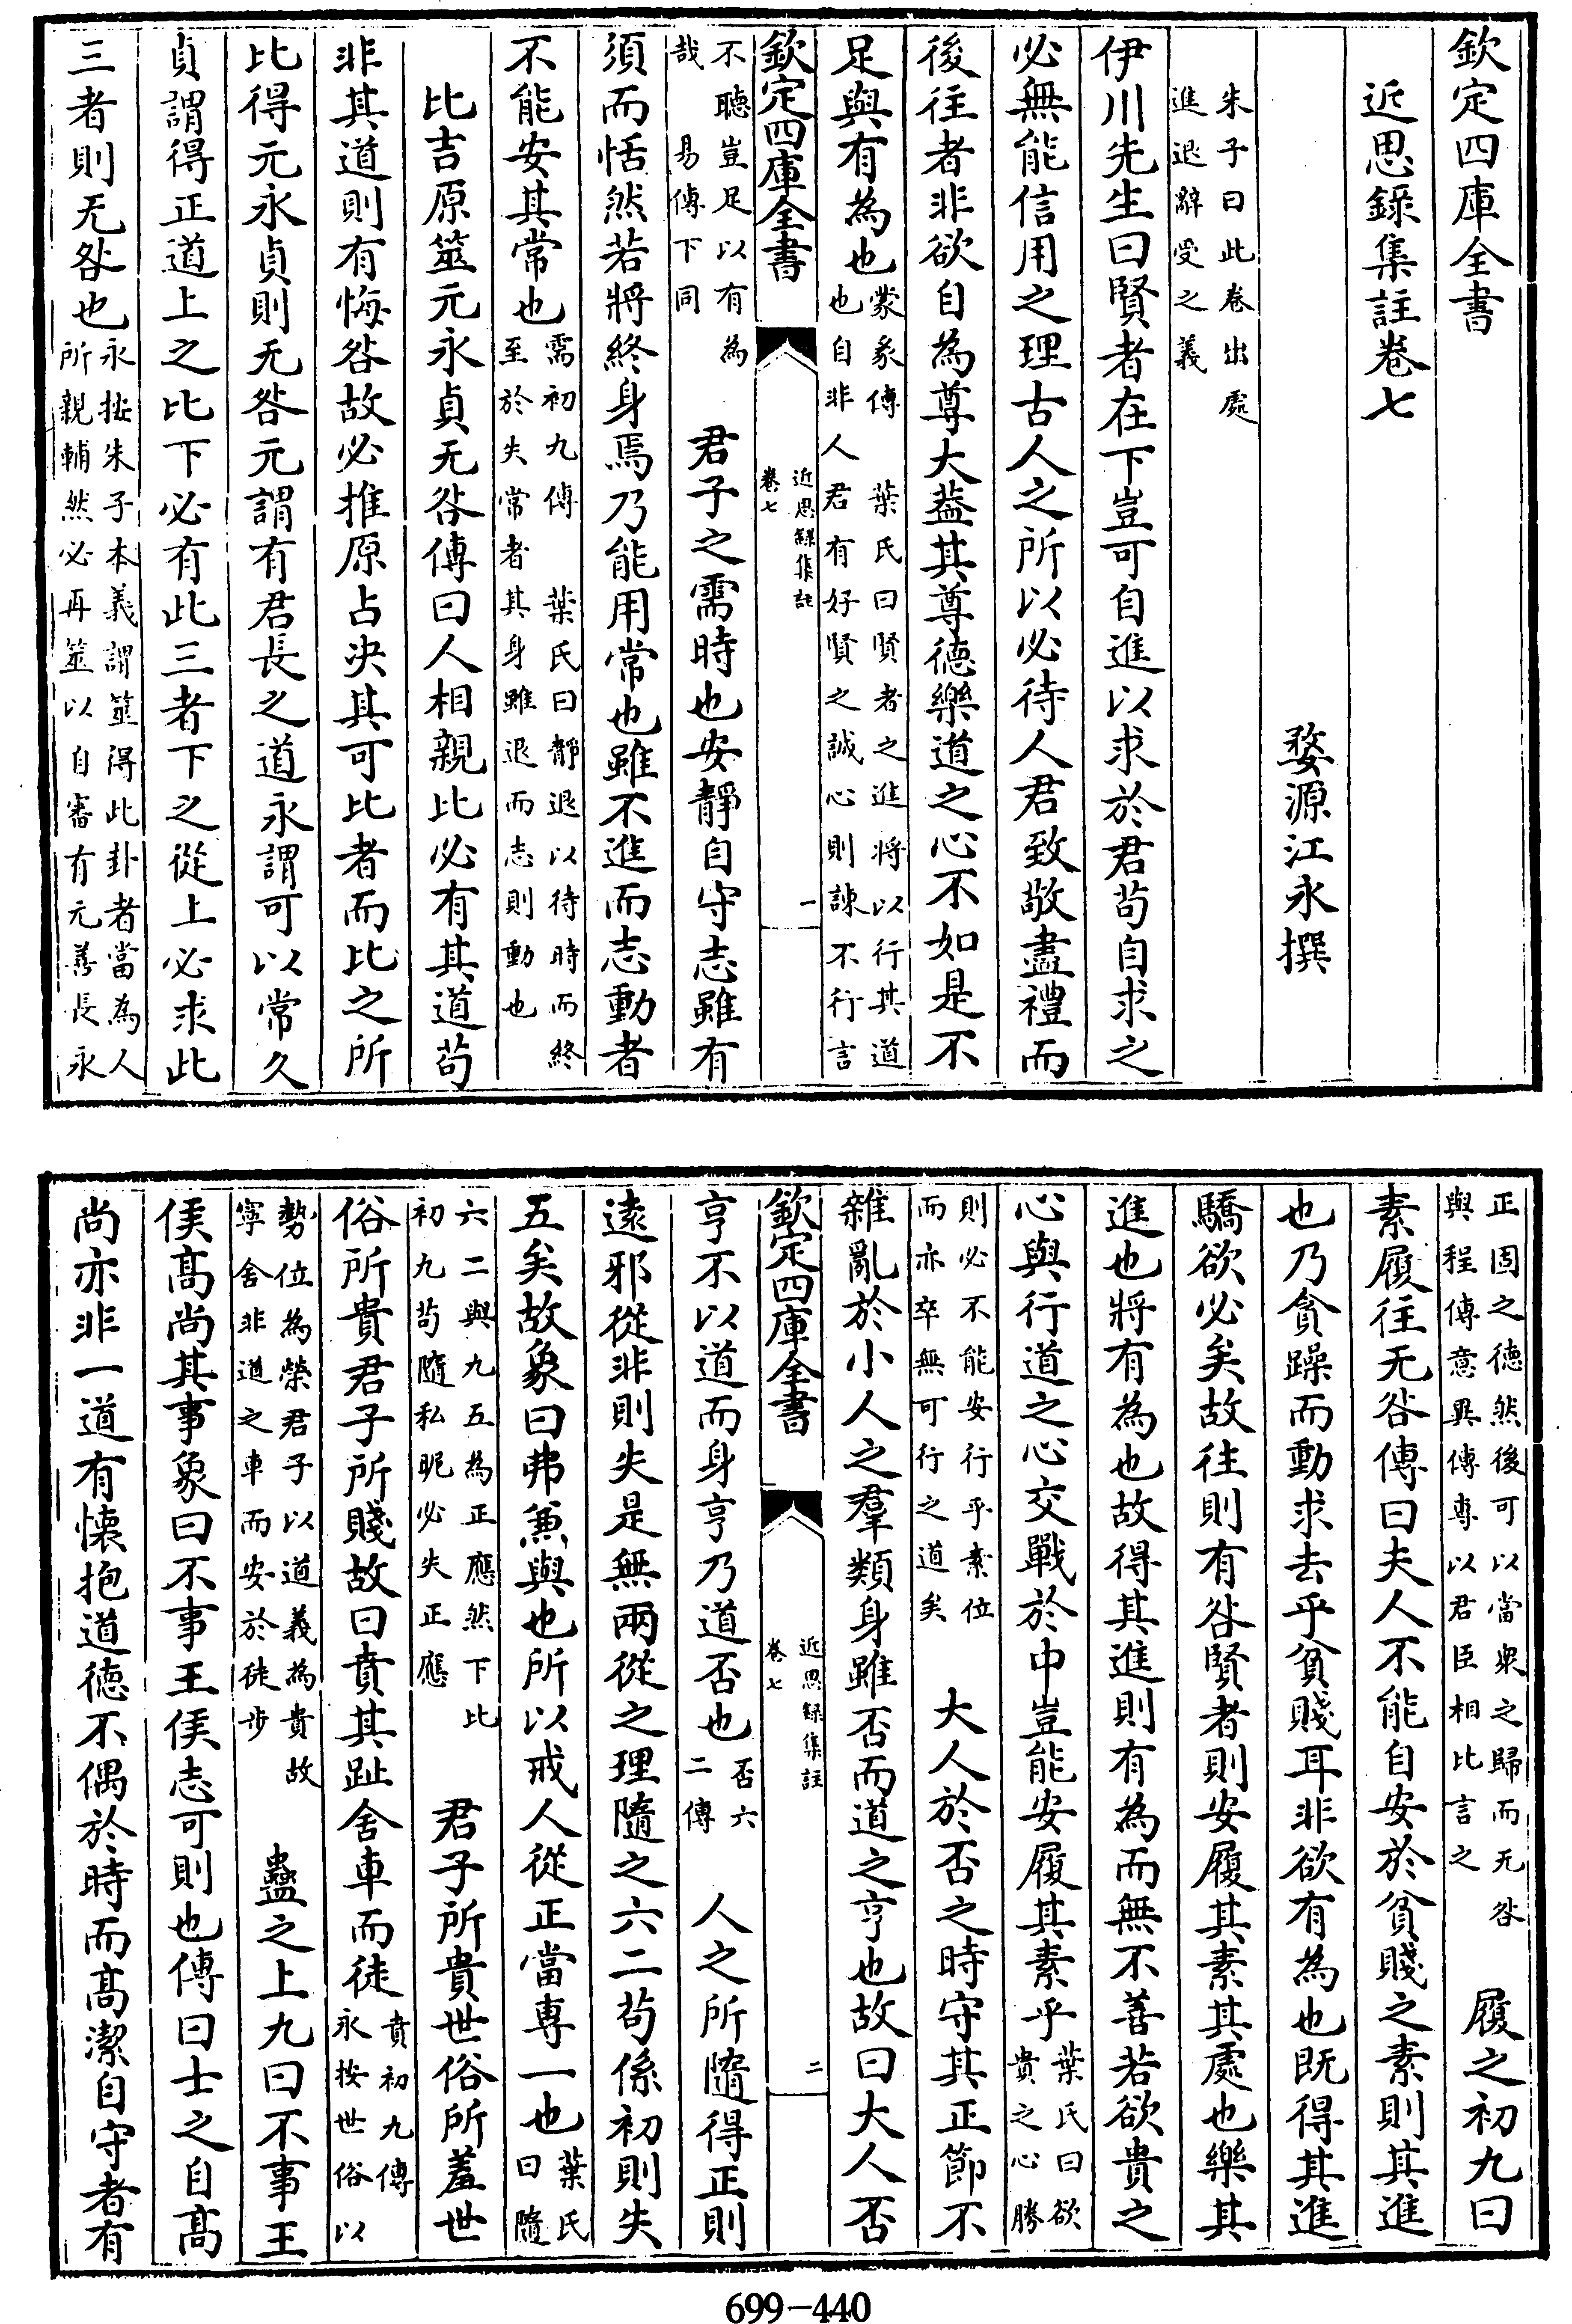 欽定四庫全書
近思錄集註卷七
婺源江永撰
朱子曰此卷出處
進退辭受之義
伊川先生曰賢者在下豈可自進以求於君苟自求之
必無能信用之理古人之所以必待人君致敬盡禮而
後往者非欲自為尊大葢其尊德樂道之心不如是不
足與有為也蒙彖傳 葉氏曰賢者之進將以行其道
也自非人君有好賢之誠心則諫不行言
欽定四庫全書
近思錄集註
卷七
一
不聽豈足以有為
哉 易傳下同
君子之需時也安靜自守志雖有
須而恬然若將終身焉乃能用常也雖不進而志動者
不能安其常也需初九傳 葉氏曰靜退以待時而終
至於失常者其身雖退而志則動也
比吉原筮元永貞无咎傳曰人相親比必有其道苟
非其道則有悔咎故必推原占决其可比者而比之所
比得元永貞則无咎元謂有君長之道永謂可以常久
貞謂得正道上之比下必有此三者下之從上必求此
三者則无咎也永按朱子本義謂筮得此卦者當為人
所親輔然必再筮以自審有元善長永
正固之德然後可以當衆之歸而无咎
與程傳意異傳專以君臣相比言之
履之初九曰
素履往无咎傳曰夫人不能自安於貧賤之素則其進
也乃貪躁而動求去乎貧賤耳非欲有為也既得其進
驕欲必矣故往則有咎賢者則安履其素其處也樂其
進也將有為也故得其進則有為而無不善若欲貴之
心與行道之心交戰於中豈能安履其素乎葉氏曰欲
貴之心勝
則必不能安行乎素位
而亦卒無可行之道矣
大人於否之時守其正節不
雜亂於小人之羣類身雖否而道之亨也故曰大人否
欽定四庫全書
近思錄集註
卷七
二
亨不以道而身亨乃道否也否六
二傳
人之所隨得正則
遠邪從非則失是無兩從之理隨之六二苟係初則失
五矣故象曰弗兼與也所以戒人從正當專一也葉氏
曰隨
六二與九五為正應然下比
初九苟隨私昵必失正應
君子所貴世俗所羞世
俗所貴君子所賤故曰賁其趾舍車而徒賁初九傳
永按世俗以
勢位為榮君子以道義為貴故
寧舍非道之車而安於徒步
蠱之上九曰不事王
侯高尚其事象曰不事王侯志可則也傳曰士之自高
尚亦非一道有懷抱道德不偶於時而高潔自守者有
699-440